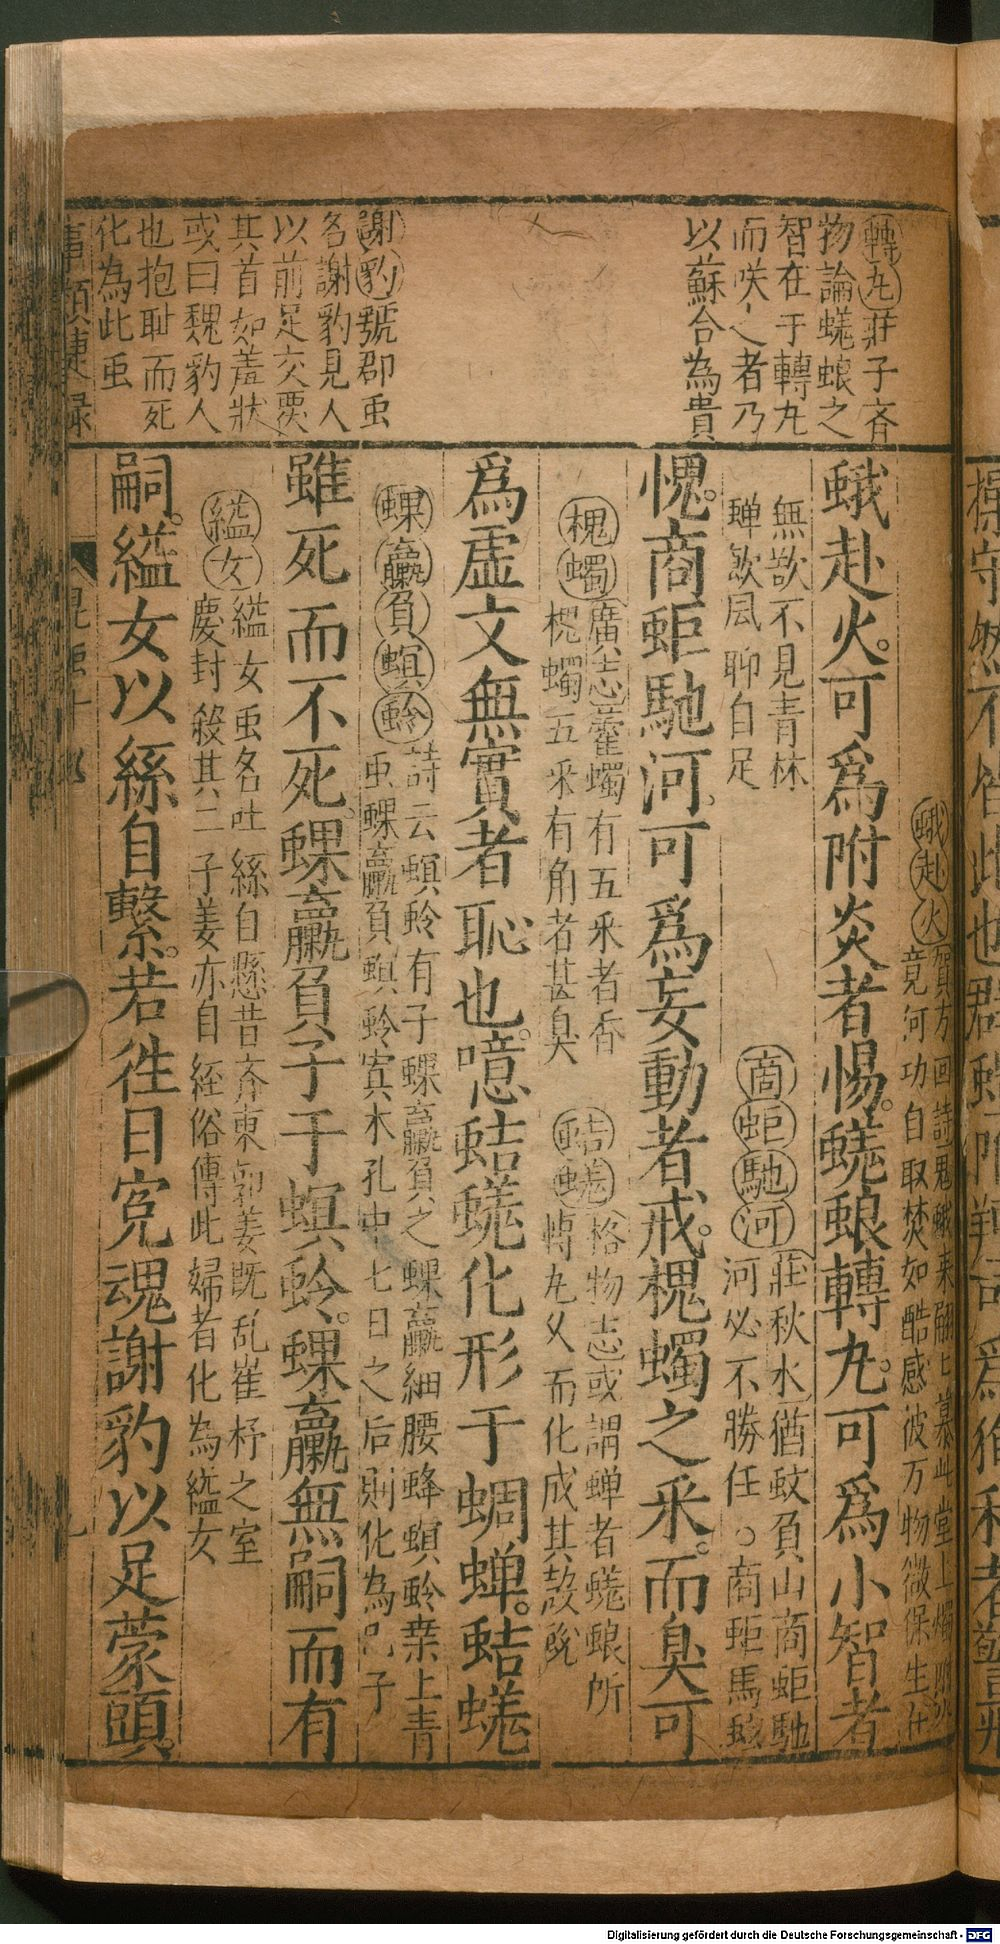 轉丸莊子斉
物論蜣蜋之
智在于轉丸
而咲之者乃
以蘇合為貴
謝豹號郡䖝
名謝豹見人
以前足交覆
其首如羞狀
或曰魏豹人
也抱耻而死
化為此䖝
蛾赴火賀方回詩鬼蛾来翩七慕此堂上燭
竟何功自取焚如酷感彼万物微保生
蛾赴火。可爲附炎者惕。蜣蜋轉丸。可爲小智者
無欲不見青林
蟬飲風聊自足
商蚷馳河莊秋水猶蚊負山商蚷馳
河必不勝任○商蚷馬蚿
愧。商蚷馳河。可爲妄動者戒。槐蠋之釆。而臭可
槐蠋廣志藿蠋有五釆者香
槐蠋五釆有角者甚臭
蛣蜣格物志或謂蟬者蜣蜋所
轉丸久而化成其殼蛻
爲虛文無實者恥也。噫蛣蜣化形于蜩蟬。蛣蜣
蜾蠃負螟蛉詩云螟蛉有子蜾蠃負之蜾蠃細腰蜂螟蛉桒上青
䖝蜾蠃負螟蛉寘木孔中七日之后則化為己子
雖死而不死。蜾蠃負子于螟蛉。蜾蠃無嗣而有
縊女縊女䖝名吐絲自懸昔斉東郭姜既乱崔杼之室
慶封殺其二子姜亦自経俗傳此婦者化為縊女
嗣。縊女以絲自繫。若徃日寃魂謝豹以足蒙頭。
事類捷録
昆䖝十
Digitalisierung gefördert durch die Deutsche Forschungsgemeinschaft - DFG